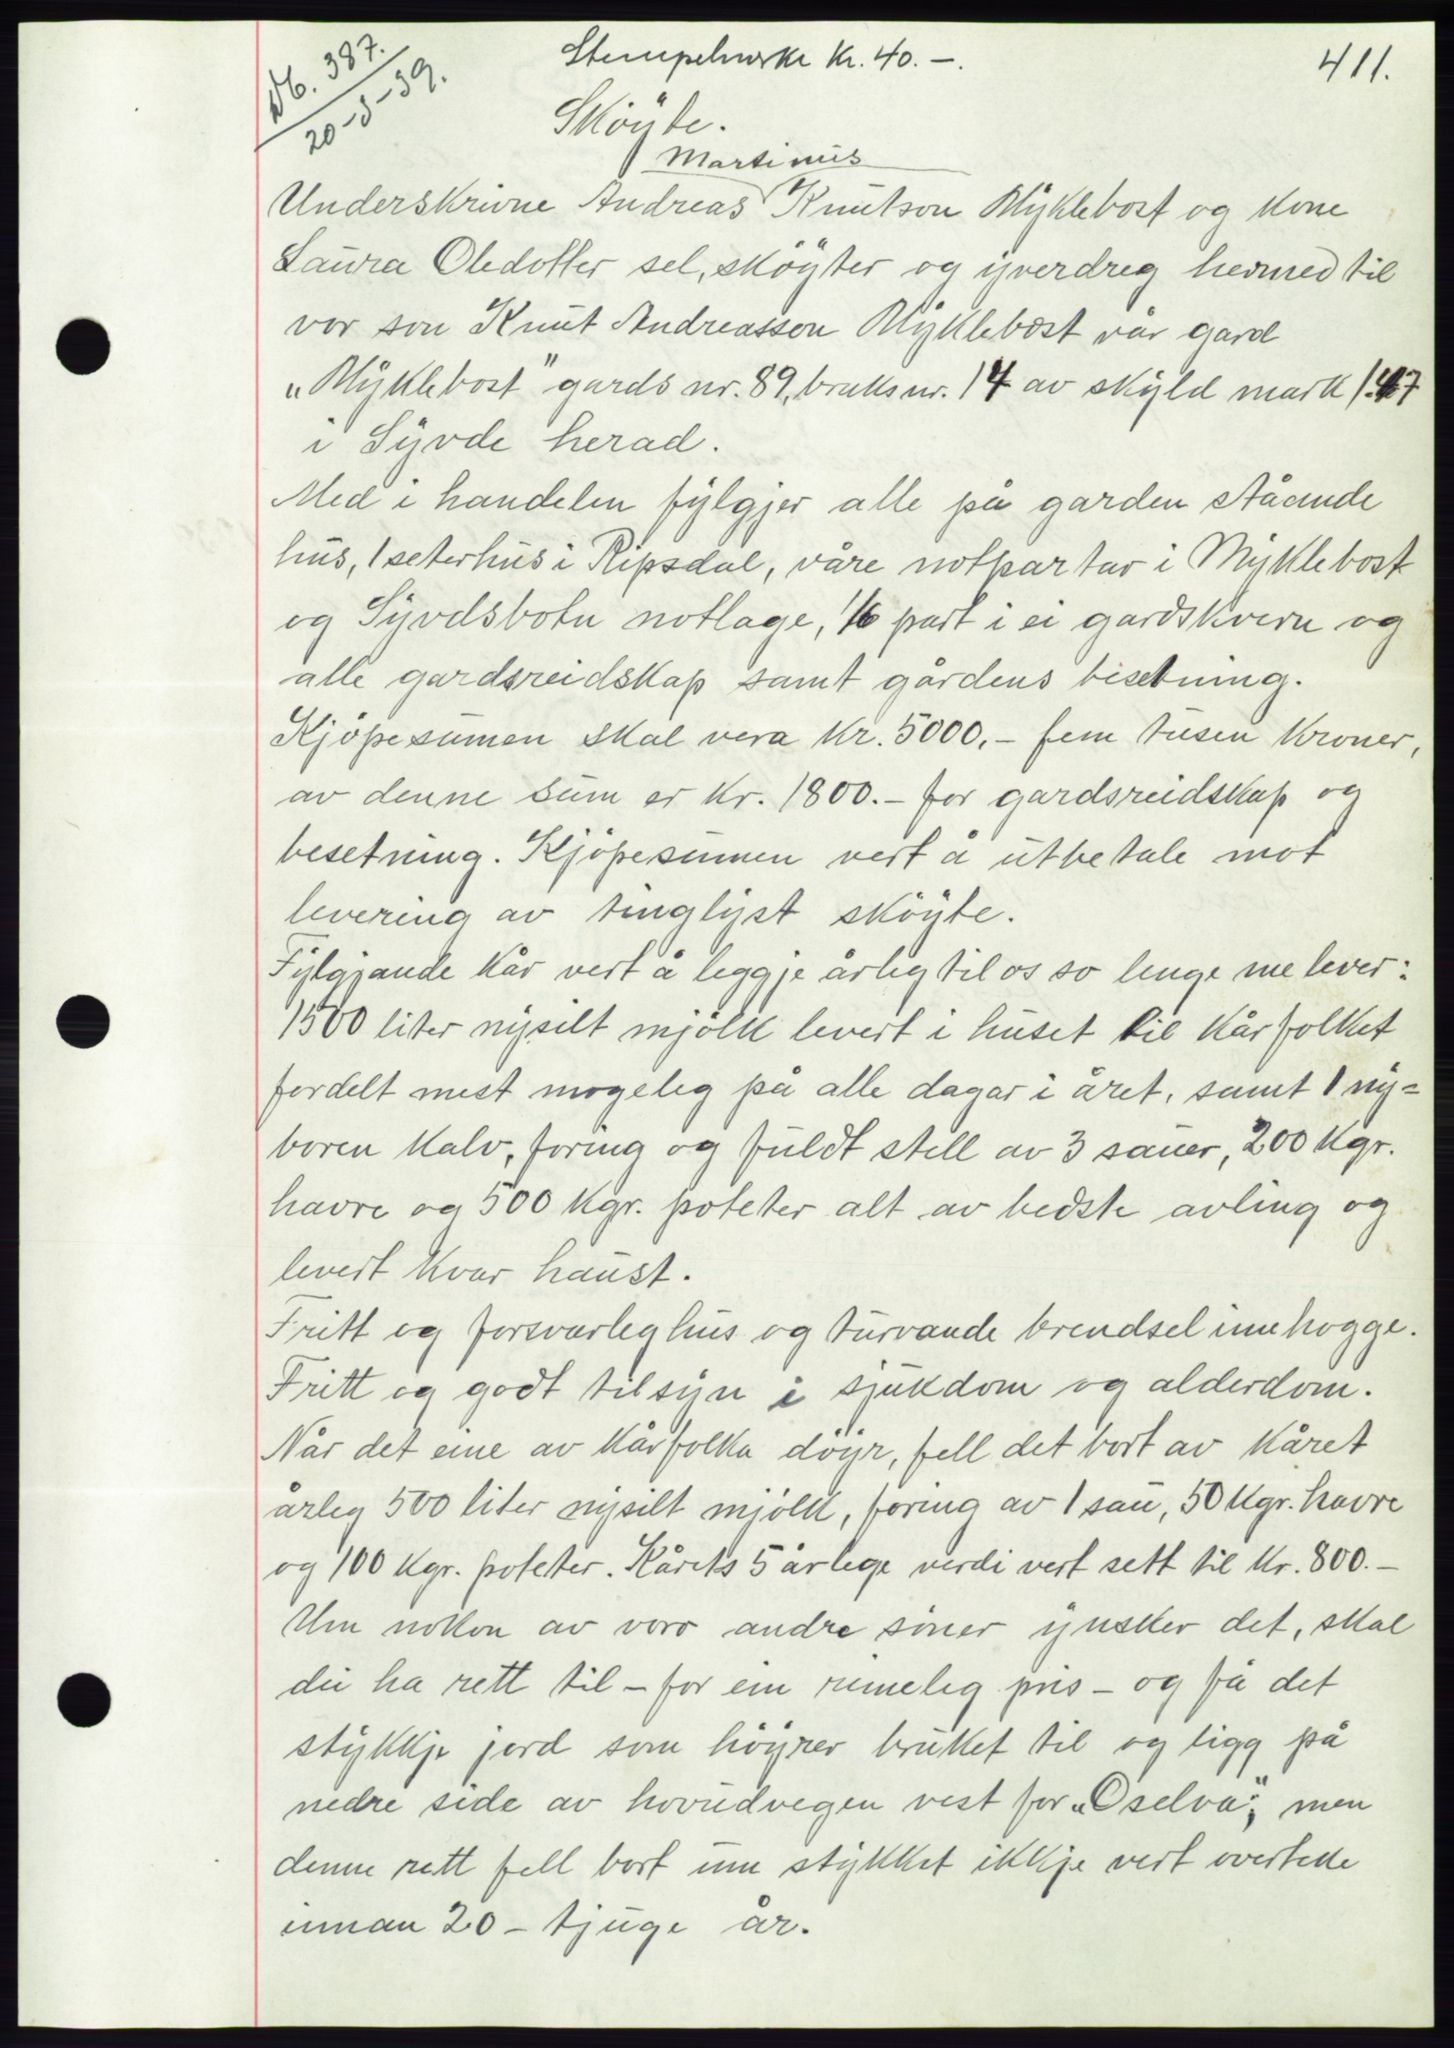 Stempelmerke kr. 40.-.
411.
Nr. 387.
20-3-39.
Sköyte.
Martinus
Underskrivne Andreas Knutson Myklebost og kone
Laura Oledotter sel, sköyter og yverdreg hermed til
vor son Knut Andreasson Myklebost vår gard
„Myklebost" gards nr. 89, bruksnr. 14 av skyld mark 1.47
i Syvde herad.
Med i handelen fylgjer alle på garden ståande
hus, 1 seterhus i Ripsdal, våre notpartar i Myklebost
og Syvdsbotn notlage, 1/6 part i ei gardskvern og
alle gardsreidskap samt gårdens bisetning.
Kjöpesumen skal vera kr. 5000.- fem tusen kroner,
av denne sum er kr. 1800.- for gardsreidskap og
besetning. Kjöpesumen vert å utbetale mot
levering av tinglyst sköyte.
Fylgjande kår vert å leggje årleg til os so lenge me lever:
1500 liter nysilt mjölk levert i huset til kårfolket
fordelt mest mogeleg på alle dagar i året, samt 1 ny=
boren kalv, foring og fuldt stell av 3 sauer, 200 kgr.
havre og 500 kgr. poteter alt av bedste avling og
levert kvar haust.
Fritt og forsvarleg hus og turvande brendsel innehogge.
Fritt og godt tilsyn i sjukdom og alderdom.
Når det eine av kårfolka döyr, fell det bort av kåret
årleg 500 liter nysilt mjölk, foring av 1 sau, 50 kgr. havre
og 100 kgr. poteter. Kårets 5 årlege verdi vert sett til kr. 800.-
Um nokon av voro andre söner ynsker det, skal
dei ha rett til - for ein rimeleg pris - og få det
stykkje jord som höyrer bruket til og ligg på
nedre side av hovudvegen vest for „Oselva", men
denne rett fell bort um stykket ikkje vert overteke
innan 20 - tjuge år.